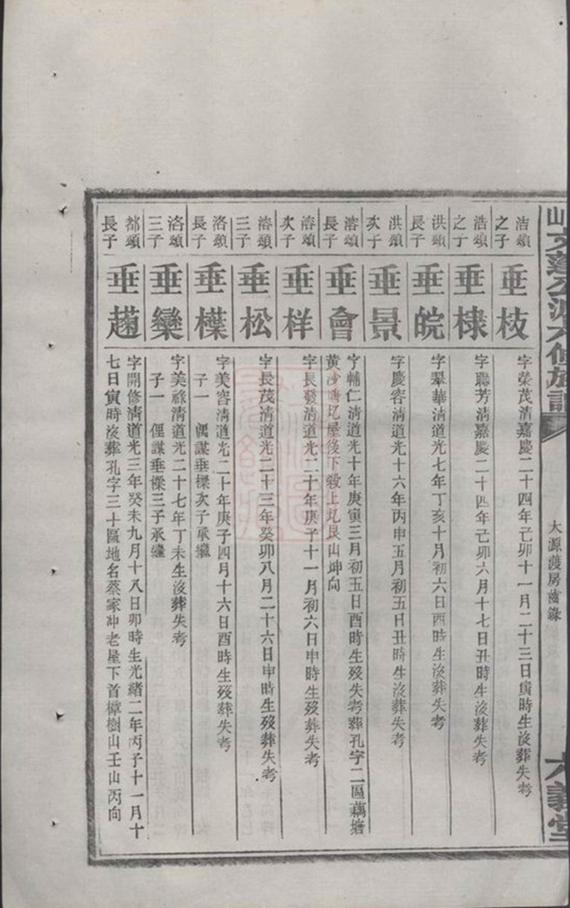 大源護房齒錄
六義堂
浩頌之子
垂枝
字榮茂清嘉慶二十四年己卯十一月二十三日寅時生沒葬失考
浩頌之子
垂棣
字聯芳清嘉慶二十四年己卯六月十七日丑時生沒葬失考
洪頌長子
垂皖
字羣華清道光七年丁亥十月初六日酉時生沒葬失考
洪頌次子
垂景
字慶容清道光十六年丙申五月初五日丑時生沒葬失考
溶頌長子
垂會
字輔仁清道光十年庚寅三月初五日酉時生歿失考葬孔字二區藕塘
黃沙墈圫屋後下殺上圫艮山坤向
溶頌次子
垂样
字長發清道光二十年庚子十一月初六日申時生歿葬失考
溶頌三子
垂松
字長茂清道光二十三年癸卯八月二十六日申時生歿葬失考
洛頌長子
垂檏
字美容清道光二十年庚子四月十六日酉時生歿葬失考
子一 偶謀垂檪次子承繼
洛頌三子
垂欒
字美祿清道光二十七年丁未生沒葬失考
子一 俚謀垂檪三子承繼
都頌長子
垂趙
字開修清道光三年癸未九月十八日卯時生光緒二年丙子十一月十
七日寅時沒葬孔字三十區地名蔡家冲老屋下首樟樹山壬山丙向